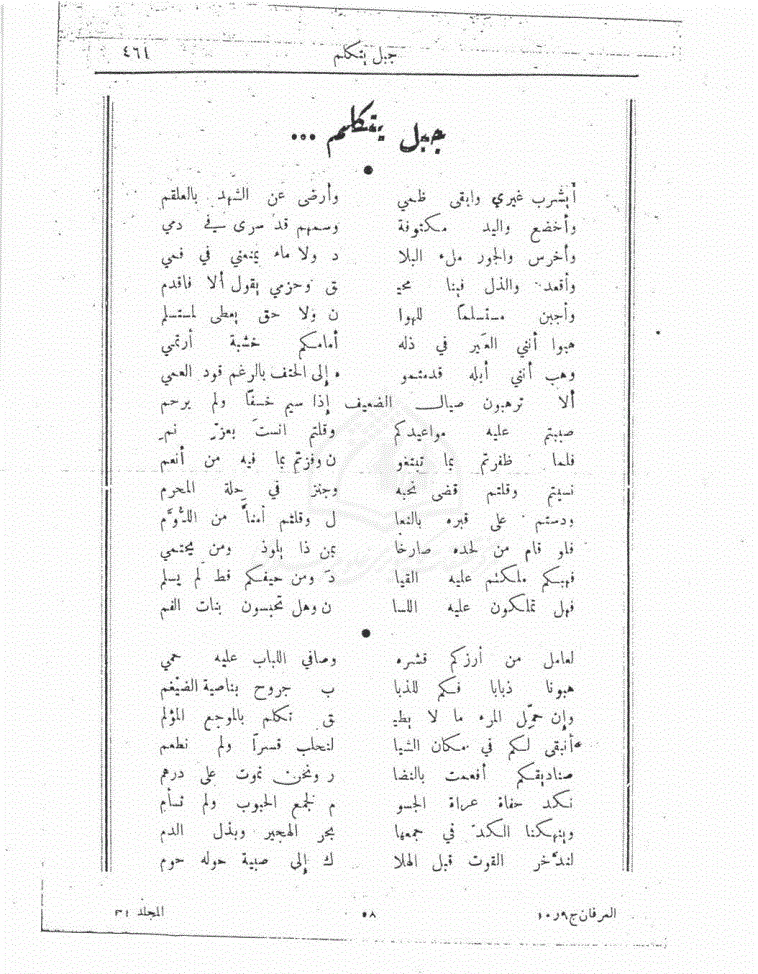 جبل يتكلم ٤٦١
جبل يتكلم ...
أيشرب غيري وابقى ظمي وأرضى عن الشهد بالعلقم
وأخضع واليد مكتوفة وسمهم قد سرى في دمي
وأخرس والجور ملء البلا د ولا ماء يمنعني في فمي
وأقعد والذل فينا محيـ ق وحزمي يقول ألا فاقدم
وأجبن مستسلماً للهوا ن ولا حق يعطى لمستسلم
هبوا أنني العير في ذله أمامكم خشبة أرتمي
وهب أنني أبله قدمتمو ه إلى الحتف بالرغم قود العمي
ألا ترهبون صيال الضعيف إذا سيم خسفاً ولم يرحم
صببتم عليه مواعيدكم وقلتم انست بعزٍ نمِ
فلما ظفرتم بما تبتغو ن وفزتم بما فيه من أنعم
نسيتم وقلتم قضى نحبه وجنز في حلة المحرم
ودستم على قبره بالنعا ل وقلتم أمناً من اللُّوَّم
فلو قام من لحده صارخا بمن ذا يلوذ ومن يحتمي
فهبكم ملكتم عليه القيا د ومن حيفكم قط لم يسلم
فهل تملكون عليه اللسا ن وهل تحبسون بنات الفم
لعامل من أرزكم قشره وصافي اللباب عليه حمي
هبونا ذبابا فكم للذبا ب جروح بناصية الضيغم
وإن حمِّل المرء ما لا يطيـ ق تكلم بالموجع المؤلم
أنبقى لكم في مكان الشيا ه لنحلب قسراً ولم نطعم
صناديقكم أفعمت بالنضا ر ونحن نموت على درهم
نكد حفاة عراة الجسو م لجمع الحبوب ولم نسأم
وينهكنا الكد في جمعها بحر الهجير وبذل الدم
لندَّخر القوت قبل الهلا ك إلى صبية حوله حوم
العرفان ج٩ و١٠ ٥٨ المجلد ٣١